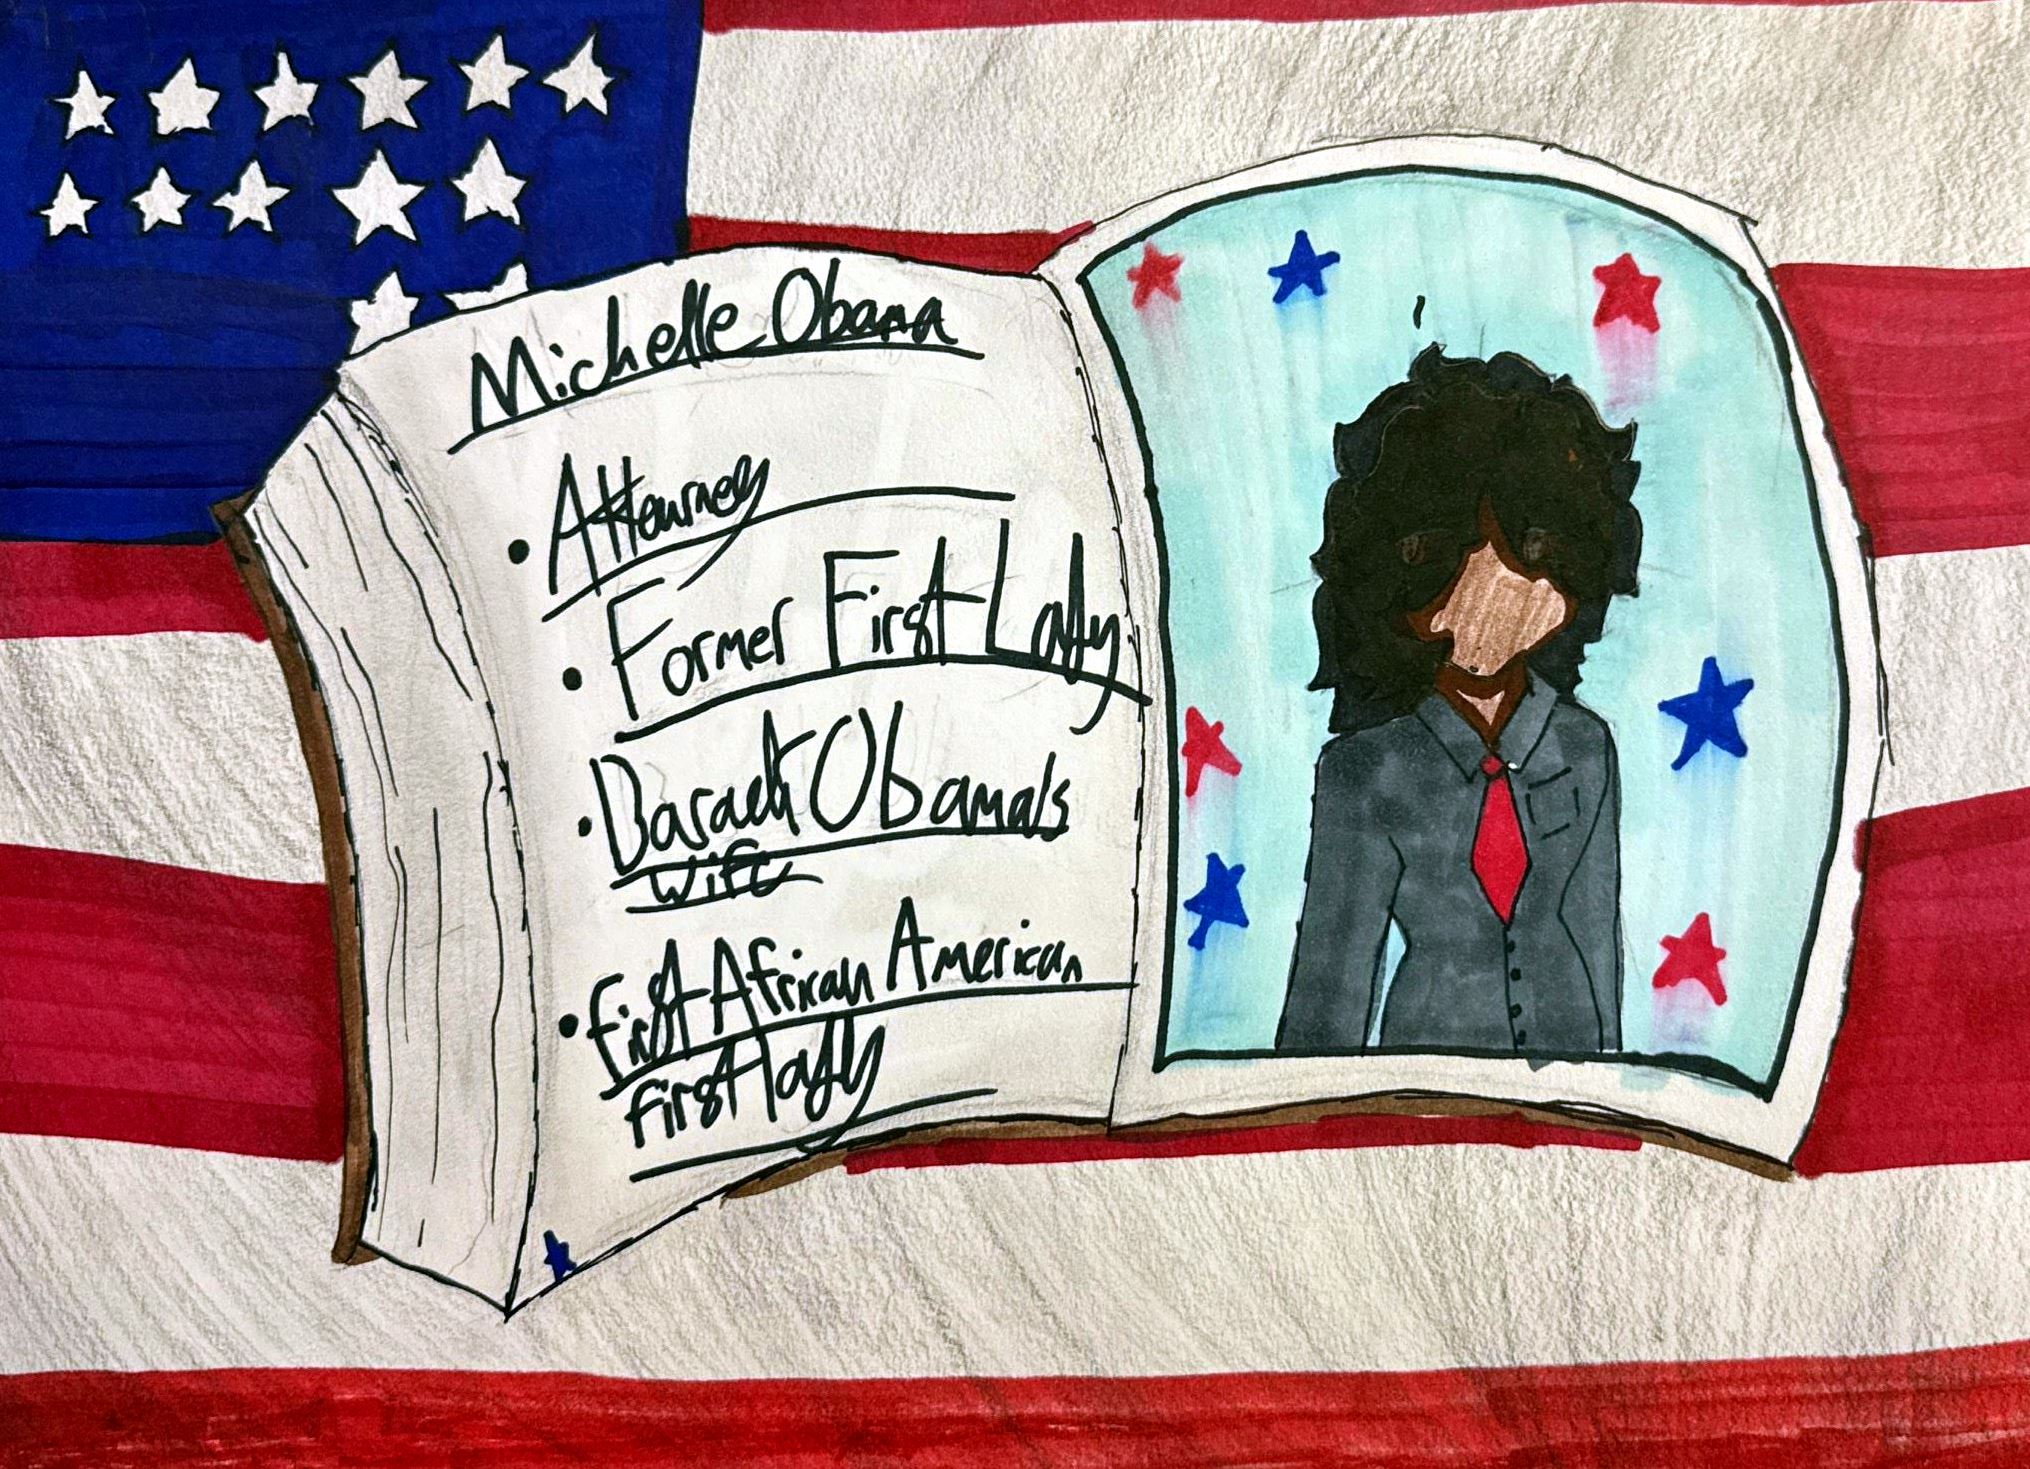 Michelle Obama
• Attourney
• Former First Lady
• Barack Obama's
wife
• first African American
first lady